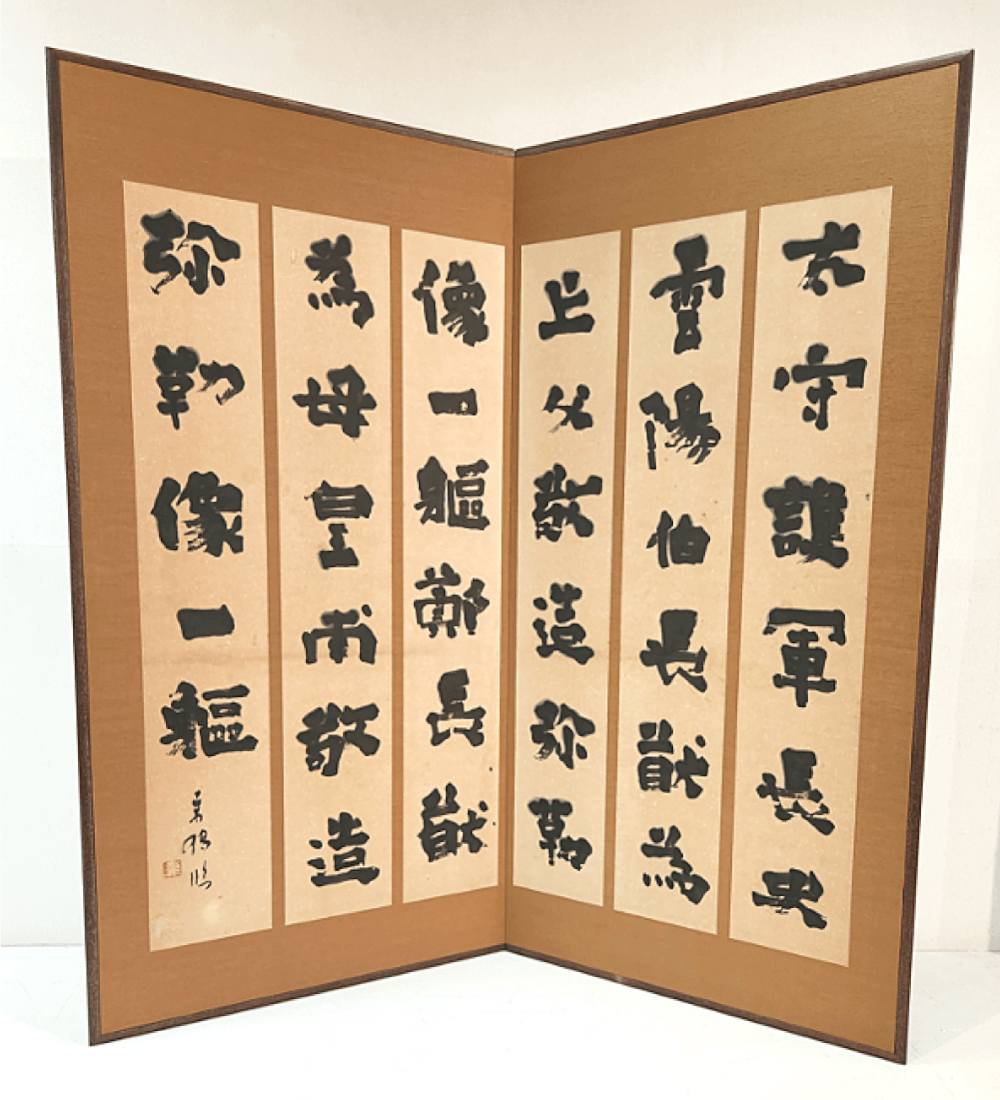 太守護軍長史
雲陽伯長猷為
亡父敬造弥勒
像一軀鄭長猷
為母皇甫敬造
弥勒像一軀